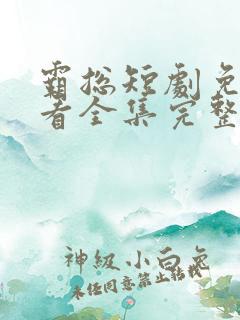 霸总短劇免
看全集完整
神级小白兔
未经同意禁止转载